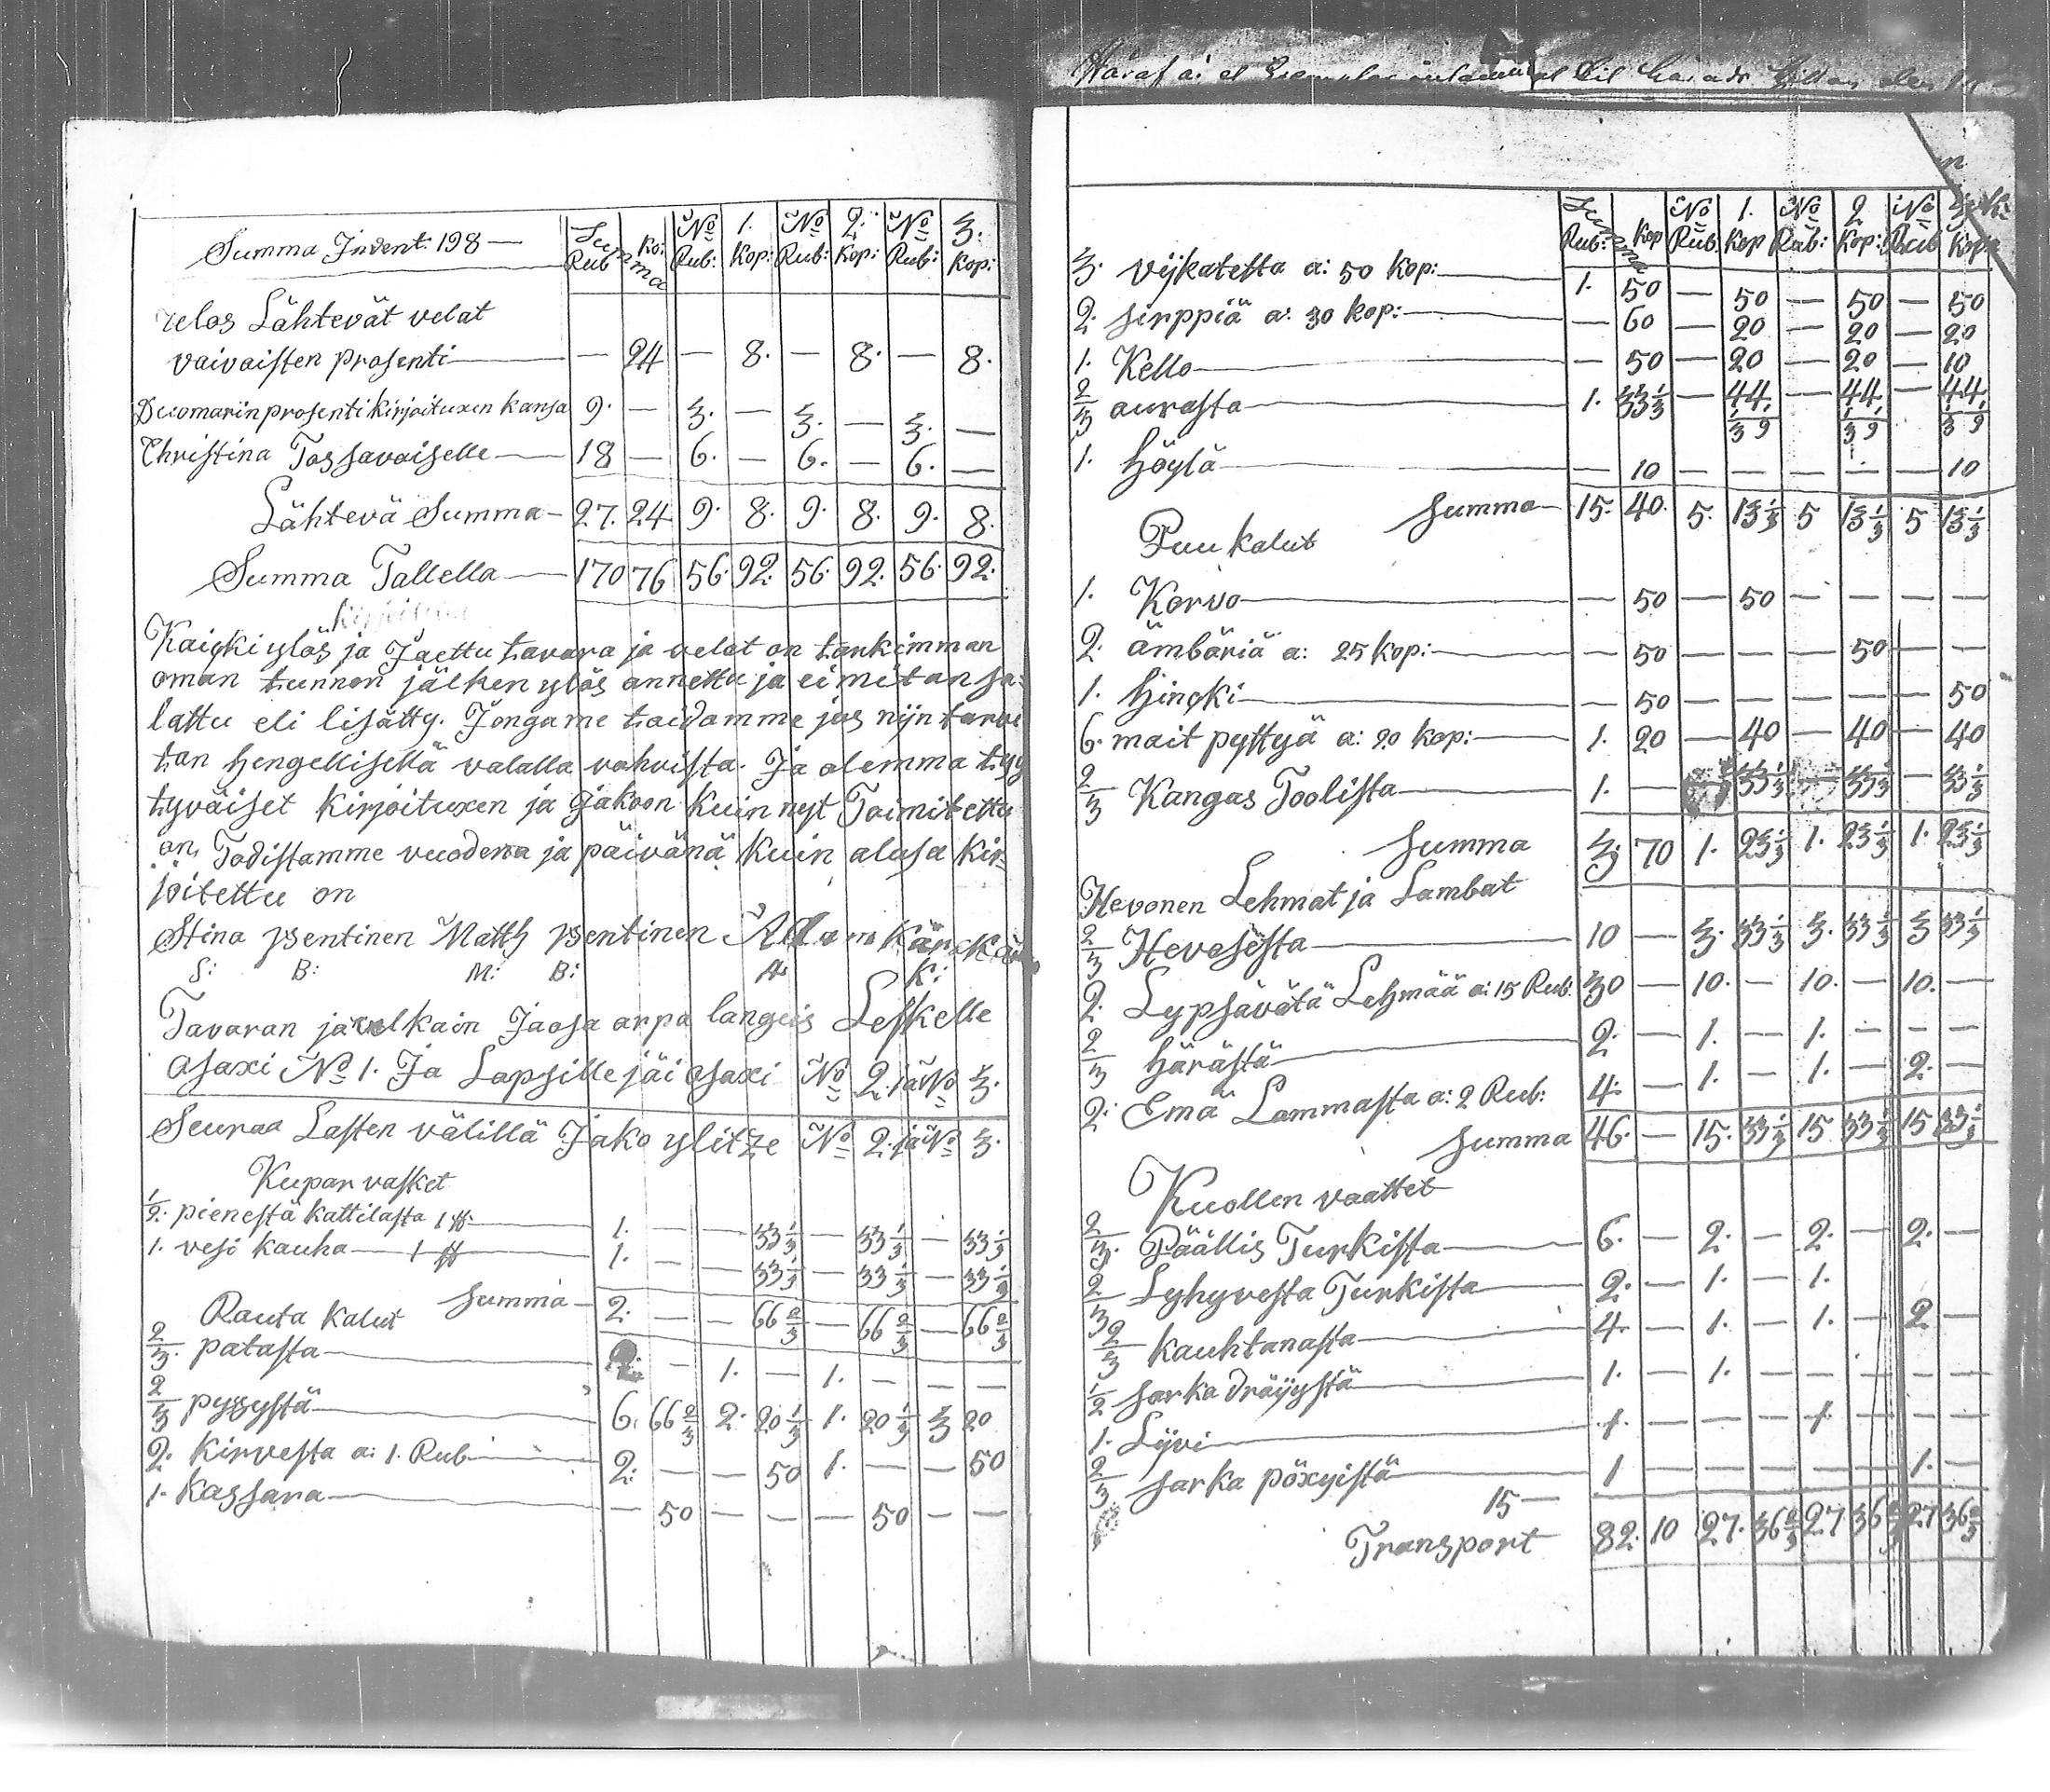 Summa Indent: 198 —
Summa Rub ko: No 1. Rub: Kop: No 2. Rub: Kop: No 3. Rub: Kop:
ulos Lähtevät velat
vaivaisten prosenti — — 24 — 8. — 8. — 8.
Duomarin prosenti kirjoituxen kansa 9. — 3. — 3. — 3. —
Christina Tossavaiselle — 18 — 6. — 6. — 6. —
Lähtevä Summa — 27. 24 9. 8. 9. 8. 9. 8.
Summa Tallella — 170 76 56. 92. 56. 92. 56. 92.
Kaicki ylös ja Jaettu tavara ja velat on tarkimman
oman tunnon jälken ylös annettu ja ei mitan sa-
lattu eli lisätty. Jonga me taidamme jos nijn tarvi
tan hengellisellä valalla vahvista. Ja olemma tyy
tyväiset Kirjoituxen ja Jakoon Kuin nyt Toimitettu
on, Todistamme vuodena ja päivänä Kuin alasa Kir-
joitettu on
Stina pentinen Matth pentinen Adam Kär
S: B: M: B: A K:
Tavaran ja velkain Jaosa arpa langeis Leskelle
osaxi No 1. Ja Lapsille jäi osaxi No 2. ja No 3.
Seuraa Lasten välillä Jako ylitze No 2. ja No 3.
Kupar vasket
1/2. pienestä kattilasta 1 ℔ — 1. — — 33 1/3 — 33 1/3 — 33 1/3
1. vesi kauha — 1 ℔ 1. — — 33 1/3 — 33 1/3 — 33 1/3
Summa — 2. — — 66 2/3 — 66 2/3 — 66 2/3
Rauta Kalut
2/3. patasta — 2. — 1. — 1. — — —
2/3 pyssystä — 6. 66 2/3 2. 20 1/3 1. 20 1/3 3 20
2. Kirvesta a: 1. Rub — 2. — — 50 1. — — 50
1. Kassara — — 50 — — — 50 — —
No 1. No 2 No
Summa Rub: Kop Rub: Kop Rub: Kop: Rub Kop
3. vijkatetta a: 50 Kop: — 1. 50 — 50 — 50 — 50
2. sirppiä a: 30 Kop: — — 60 — 20 — 20 — 20
1. Kello — — 50 — 20 — 20 — 10
2/3 aurasta — 1. 33 1/3 — 44. 1/3 9 — 44. 1/3 9 — 44. 1/3 9
1. höylä — — 10 — — — — — 10
Summa — 15. 40. 5. 13 1/3 5 13 1/3 5 13 1/3
Puu Kalut
1. Korvo — — 50 — 50 — — — —
2. ämbäriä a: 25 Kop: — — 50 — — — 50 — —
1. hincki — — 50 — — — — — 50
6. mait pyttyä a: 20 Kop: — 1. 20 — 40 — 40 — 40
2/3 Kangas Toolista — 1. — — 33 1/3 — 33 1/3 — 33 1/3
Summa 3. 70 1. 23 1/3 1. 23 1/3 1. 23 1/3
Hevonen Lehmat ja Lambat
2/3 Hevosesta — 10 — 3. 33 1/3 3. 33 1/3 3 33 1/3
2. Lypsävätä Lehmää a: 15 Rub. 30 — 10. — 10. — 10. —
2/3 härästä — 2. — 1. — 1. — — —
2. Emä Lammasta a: 2 Rub: 4. — 1. — 1. — 2. —
Summa 46. — 15. 33 1/3 15 33 1/3 15 33 1/3
Kuollen vaattet
2/3. Päällis Turkista — 6. — 2. — 2. — 2. —
2/3 Lyhyvesta Turkista — 2. — 1. — 1.
2/3 kauhtanasta — 4. — 1. — 1. — 2 —
1/2 sarka dräystä — 1. — 1. — — — — —
1. Lijvi — 1. — — — 1. — — —
2/3 sarka pöxyistä — 1 — — — — — 1. —
15 —
Transport 82. 10 27. 36 2/3 27 36 2/3 27 36 2/3